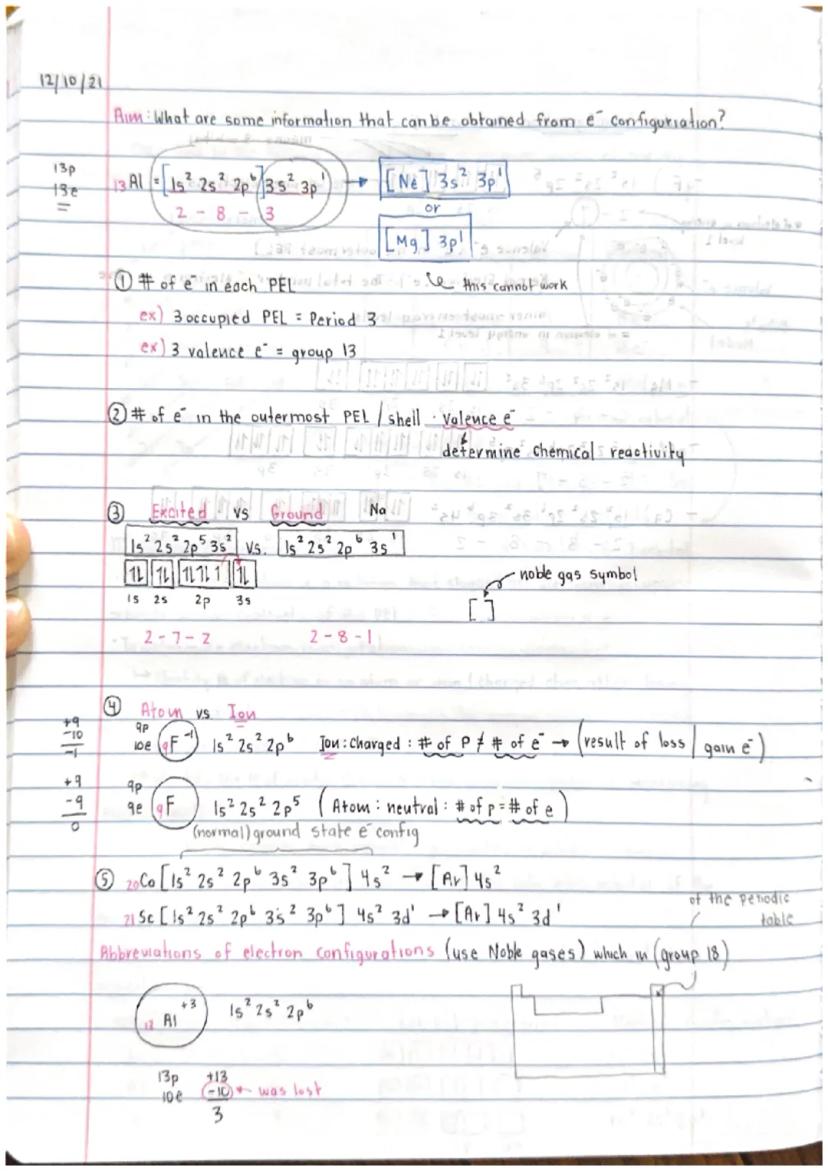 12/10/21
Aim: What are some information that can be obtained from e⁻ configuration?
13p
13e
₁₃Al = [1s² 2s² 2p⁶] 3s² 3p¹ → [Ne] 3s² 3p¹
2 - 8 - 3
or
[Mg] 3p¹
this cannot work
① # of e⁻ in each PEL
ex) 3 occupied PEL = Period 3
ex) 3 valence e⁻ = group 13
② # of e⁻ in the outermost PEL / shell · valence e⁻
determine chemical reactivity
③ Excited vs Ground Na
1s² 2s² 2p⁵ 3s² vs. 1s² 2s² 2p⁶ 3s¹
⥮ ⥮ ⥮⥮↿ ⥮
1s 2s 2p 3s
noble gas symbol
[ ]
2-7-2 2-8-1
④ Atom vs Ion
+9
-10
-1
9p
10e ₉F⁻¹ 1s² 2s² 2p⁶ Ion: charged: # of P ≠ # of e⁻ → (result of loss / gain e⁻)
+9
-9
0
9p
9e ₉F 1s² 2s² 2p⁵ (Atom: neutral: # of p = # of e)
(normal) ground state e⁻ config
⑤ ₂₀Ca [1s² 2s² 2p⁶ 3s² 3p⁶] 4s² → [Ar] 4s²
₂₁Sc [1s² 2s² 2p⁶ 3s² 3p⁶] 4s² 3d¹ → [Ar] 4s² 3d¹
of the periodic
table
Abbreviations of electron configurations (use Noble gases) which in (group 18)
Al⁺³ 1s² 2s² 2p⁶
13p +13
10e -10 ← was lost
3